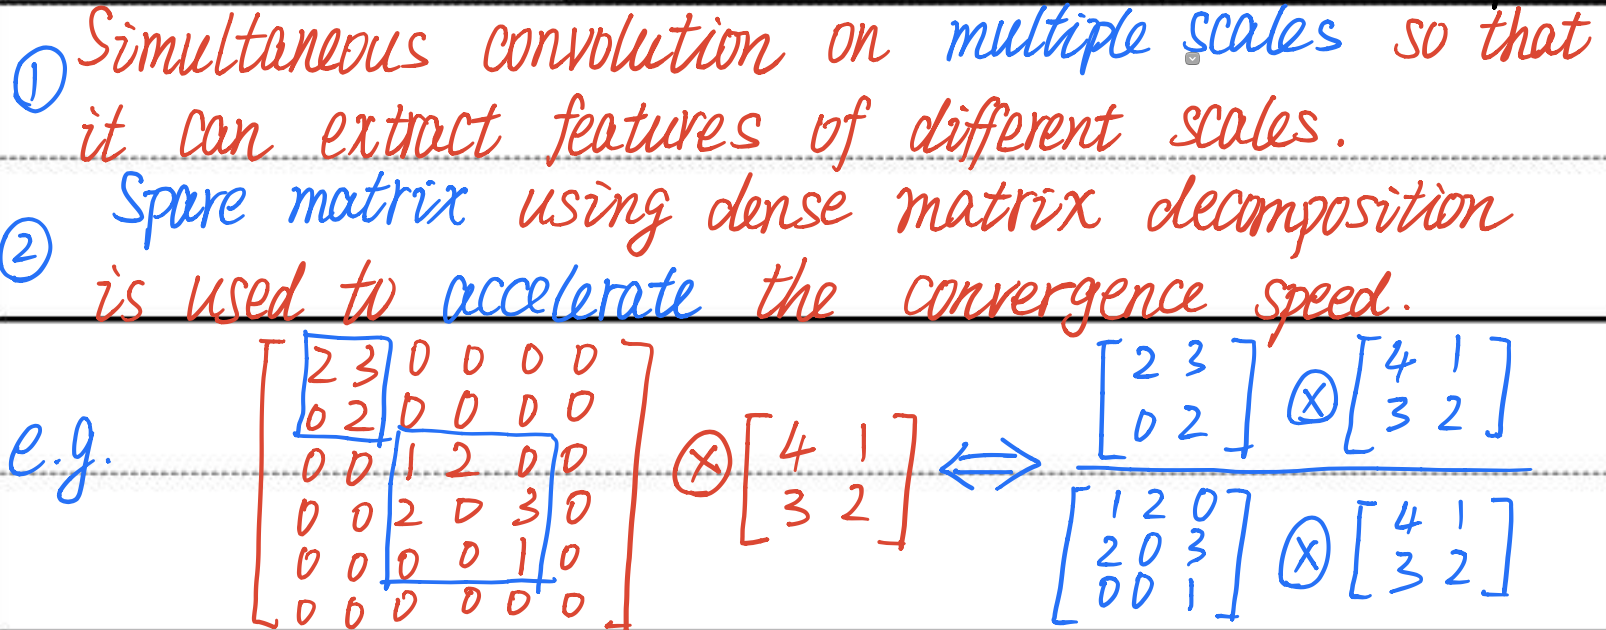 ① Simultaneous convolution on multiple scales so that
it can extract features of different scales.
② Spare matrix using dense matrix decomposition
is used to accelerate the convergence speed.
e.g.
[2 3 0 0 0 0
0 2 0 0 0 0
0 0 1 2 0 0
0 0 2 0 3 0
0 0 0 0 1 0
0 0 0 0 0 0]
⊗
[4 1
3 2]
⇔
[2 3
0 2]
⊗
[4 1
3 2]
[1 2 0
2 0 3
0 0 1]
⊗
[4 1
3 2]